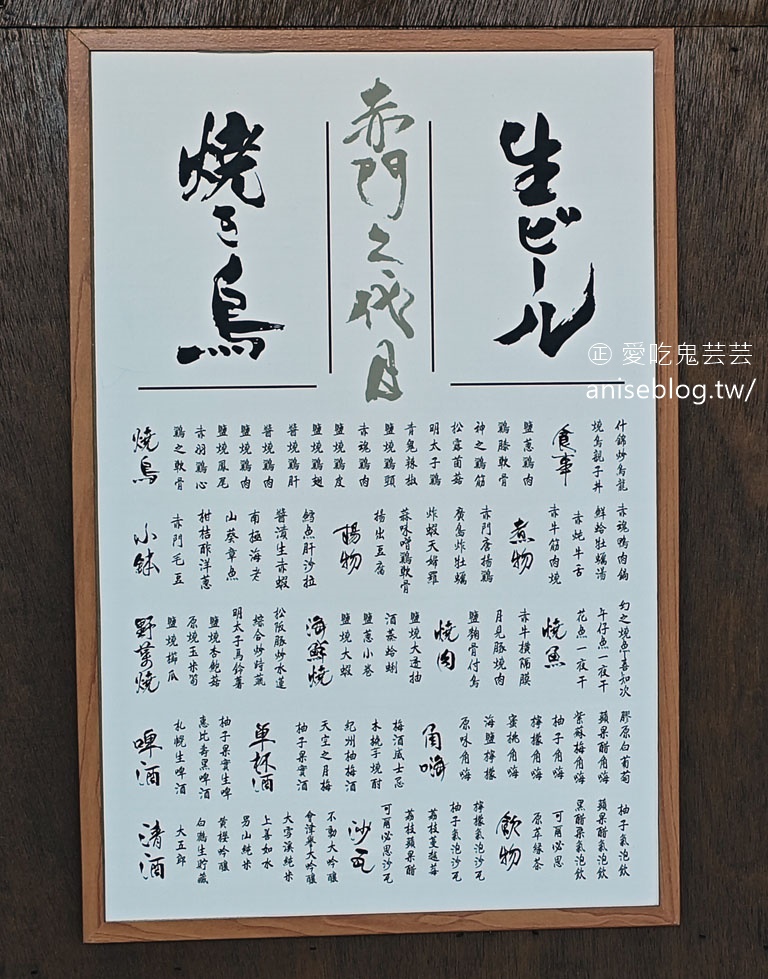 生ビール
赤門二代目
焼き鳥
燒鳥
雞之軟骨
赤羽雞心
鹽燒鳳尾
鹽燒雞肉
醬燒雞肉
醬燒雞肝
鹽燒雞翅
鹽燒雞皮
赤魂雞肉
鹽燒雞頸
青鬼辣椒
明太子雞
松露菌菇
神之雞筋
雞膝軟骨
鹽蔥雞肉
食事
燒鳥親子丼
什錦炒烏龍
小鉢
赤門毛豆
柑桔酢洋蔥
山葵章魚
南極海老
醬漬生赤蝦
鱈魚肝沙拉
揚物
揚出豆腐
蒜味啃雞軟骨
炸蝦天婦羅
廣島炸牡蠣
赤門唐揚雞
煮物
赤牛筋肉燒
赤炖牛舌
鮮蛤牡蠣湯
赤魂鴨肉鍋
野菜燒
鹽燒櫛瓜
原燒玉米筍
鹽燒杏鮑菇
明太子馬鈴薯
綜合炒時蔬
松阪豚炒水蓮
海鮮燒
鹽燒大蝦
鹽蔥小卷
酒蒸蛤蜊
鹽燒大透抽
燒肉
鹽麴骨付鳥
月見豚燒肉
赤牛橫隔膜
燒魚
花魚一夜干
午仔魚一夜干
幻之燒魚喜知次
啤酒
札幌生啤酒
惠比壽黑啤酒
柚子果實生啤
單杯酒
柚子果實酒
天空之月梅
紀州柚梅酒
木桃子燒酎
梅酒威士忌
角嗨
原味角嗨
海鹽檸檬
蜜桃角嗨
檸檬角嗨
柚子角嗨
紫蘇梅角嗨
蘋果醋角嗨
膠原白葡萄
清酒
大五郎
白鶴生貯藏
黃櫻吟釀
男山純米
上善如水
大雪溪純米
會津譽大吟釀
不動大吟釀
沙瓦
可爾必思沙瓦
荔枝蘋果醋
荔枝蔓越莓
柚子氣泡沙瓦
檸檬氣泡沙瓦
飲物
原萃綠茶
可爾必思
黑醋栗氣泡飲
蘋果醋氣泡飲
柚子氣泡飲
愛吃鬼芸芸
aniseblog.tw/